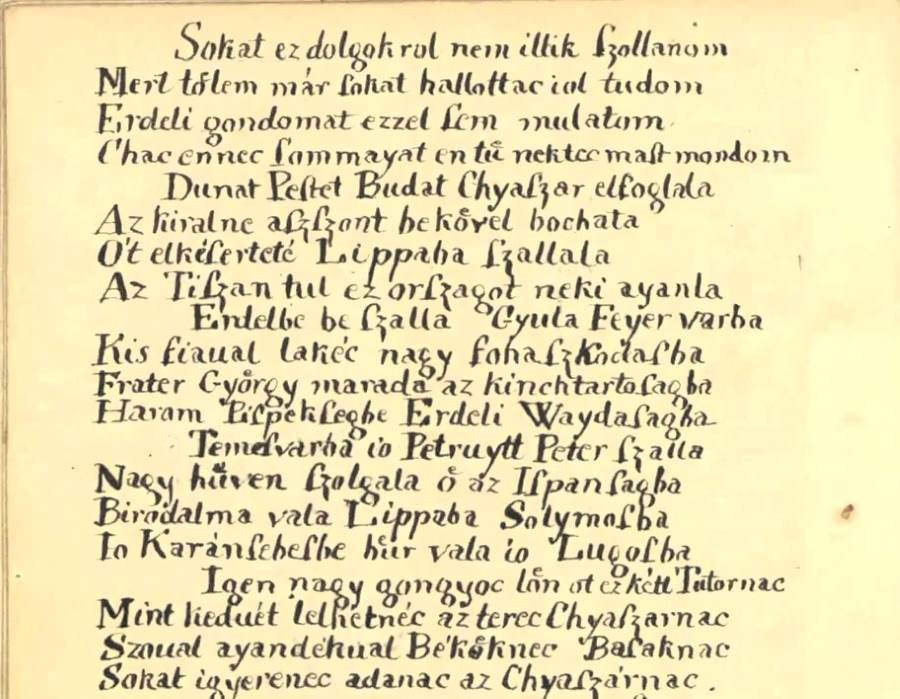 Sokat ez dolgokrol nem illik ſzollanom
Mert tőlem már ſokat hallottac iol tudom
Erdeli gondomat ezzel ſem mulatom
Chac ennec ſommayat en tů nektec maſt mondom
Dunat Peſtet Budat Chyaſzar elfoglala
Az kiralne aſzſzont bekővel bochata
Ő't elkéſerteté Lippaba ſzallala
Az Tiſzan tul ez orſzagot neki ayanla
Erdelbe be ſzalla Gyula Feyer varba
Kis fiaual lakéc nagy fohaſzkodaſba
Frater György marada az kinchtartoſagba
Harom Piſpekſegbe Erdeli Waydaſagba
Temeſvarba io Petruytt Peter ſzalla
Nagy hűven ſzolgala ő az Iſpanſagba
Birodalma vala Lippaba Solymoſba
Io Karánſebeſbe hůr vala io Lugoſba
Igen nagy gongyoc lőn ot ez kétt Tutornac
Mint keduét lelhetnéc áz terec Chyaſzarnac
Szoual ayandékual Békőknec Baſaknac
Sokat igyerenec adanac az Chyaſzárnac.